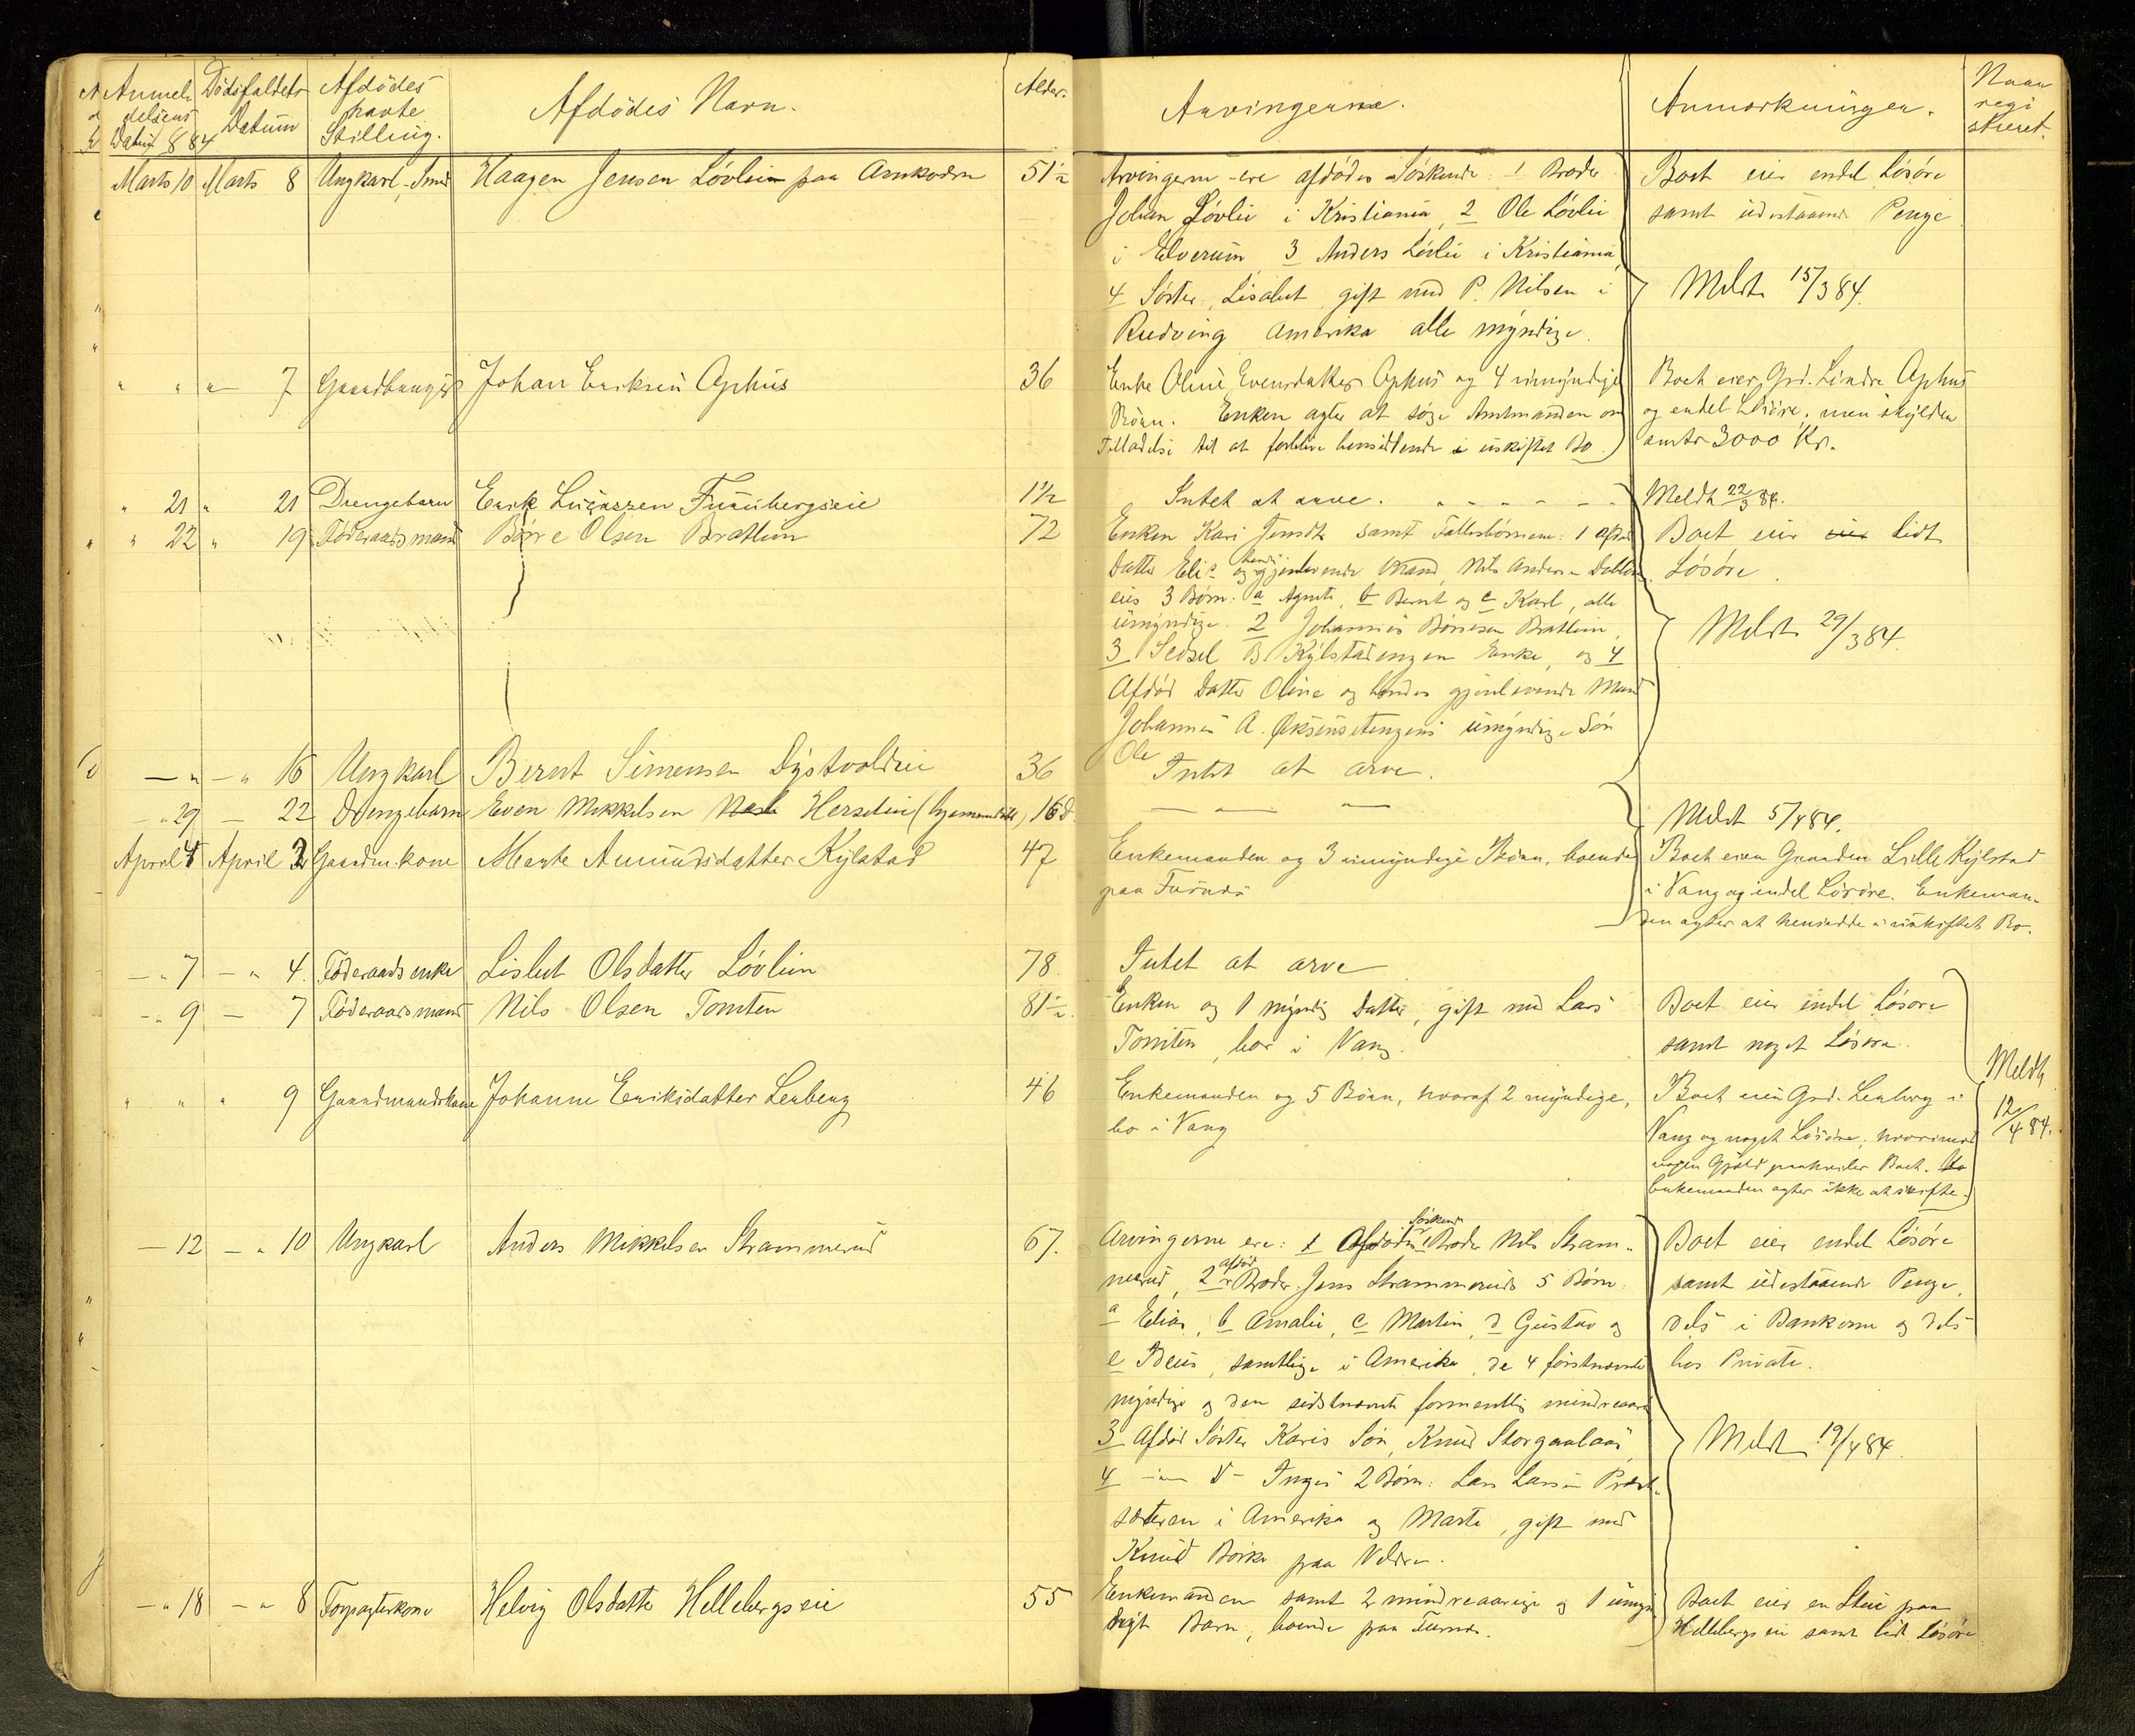 Anmel- Dödsfaldets Afdödes Afdödes Navn. Alder. Arvingerne. Anmærkninger. Naar
delsens Datum havte regi
Datum 884 Stilling. streret.
Marts 10 Marts 8 Ungkarl, Haagen Jensen Lövlien paa 51½ Arvingerne ere afdödes Söskende: 1 Broder Boet eier endel Lösöre
Johan Lövlie i Kristiania, 2 Ole Lövlie samt udestaaende Penge
i Elverum 3 Anders Lövlie i Kristiania,
4 Söster, Lisabet, gift med P. Nilsen i Meldt 15/3 84.
Redving Amerika alle myndige.
" " " 7 Gaardbruger Johan Eriksen Aphus 36 Enke Oline Evensdatter Aphus og 4 umyndige Boet eier Grd. Lindre Aphus
Börn. Enken agter at söge Amtmanden om og endel Lösöre, men skylder
Tilladelse til at forblive hensiddende i uskiftet Bo. 3000 Kr.
" 21 " 21 Drengebarn Erik Furubergseie 1½ Intet at arve. Meldt 22/3 84.
" " 22 " 19 Föderaadsmand Börre Olsen Bratlien 72 Enken Kari samt Fællesbörnene: 1 afdöd Boet eier lidt
Datter Elis og hendes gjenlevende Mand, Nils Andersen Lösöre.
eies 3 Börn: a Agnete, b Bernt og c Karl, alle
umyndige. 2 Johannes Börresen Bratlien, Meldt 29/3 84.
3 Sedsel B. Kylstadengen Enke, og 4
Afdöd Datter Oline og hendes gjenlevende Mand
Johannes A. umyndige Sön
Ole
— " — " 16 Ungkarl Bernt Simensen Dystvoldeie 36 Intet at arve.
— " 29 — 22 Drengebarn Even Mikkelsen Herselien (hjemmedöbt) 16 d — " — " — Meldt 5/4 84.
April 4 April 2 Gaardm.kone Marte Amundsdatter Kylstad 47 Enkemanden og 3 umyndige Börn, boende Boet eier Gaarden Lille Kylstad
paa Furnæs i Vang og endel Lösöre. Enkeman-
den agter at hensidde i uskiftet Bo.
— " 7 — " 4 Föderaadsenke Lisbet Olsdatter Lövlien 78. Intet at arve
— " 9 — 7 Föderaadsmand Nils Olsen Tomten 81½ Enken og 1 myndig Datter, gift med Lars Boet eier endel Lösöre
Tomten, bor i Vang. samt noget Lösöre.
Meldt
" " " 9 Gaardmandskone Johanne Eriksdatter Lenberg 46 Enkemanden og 5 Börn, hvoraf 2 myndige, Boet eier Grd. Lenberg i 12/4 84.
bo i Vang Vang og noget Lösöre, hvorimod
nogen Gjæld paahviler Boet.
Enkemanden agter ikke at skifte.
— 12 — " 10 Ungkarl Anders Mikkelsen Strammerud 67. Arvingerne ere: 1 Afdödes Söskend Broder Nils Stram- Boet eier endel Lösöre
merud, 2 afdöd Broder Jens Strammeruds 5 Börn. samt udestaaende Penge,
a Elias, b Amalie, c Martin, d Gustav og dels i Bankerne og dels
e samtlige i Amerika, de 4 förstnævnte hos Private.
myndige og den sidstnævnte formentlig mindreaarig
3 Afdöd Söster Karis Sön, Knud Meldt 19/4 84.
4 — " — D— Inges 2 Börn: Lars Larsen Præst-
sæteren i Amerika og Marte, gift med
Knud Börke paa Veldre.
— " 18 — " 8 Helvig Olsdatter Hellebergseie 55 Enkemanden samt 2 mindreaarige og 1 umyn- Boet eier en Stue paa
digt Barn, boende paa Furnæs. Hellebergseie samt lidt Lösöre